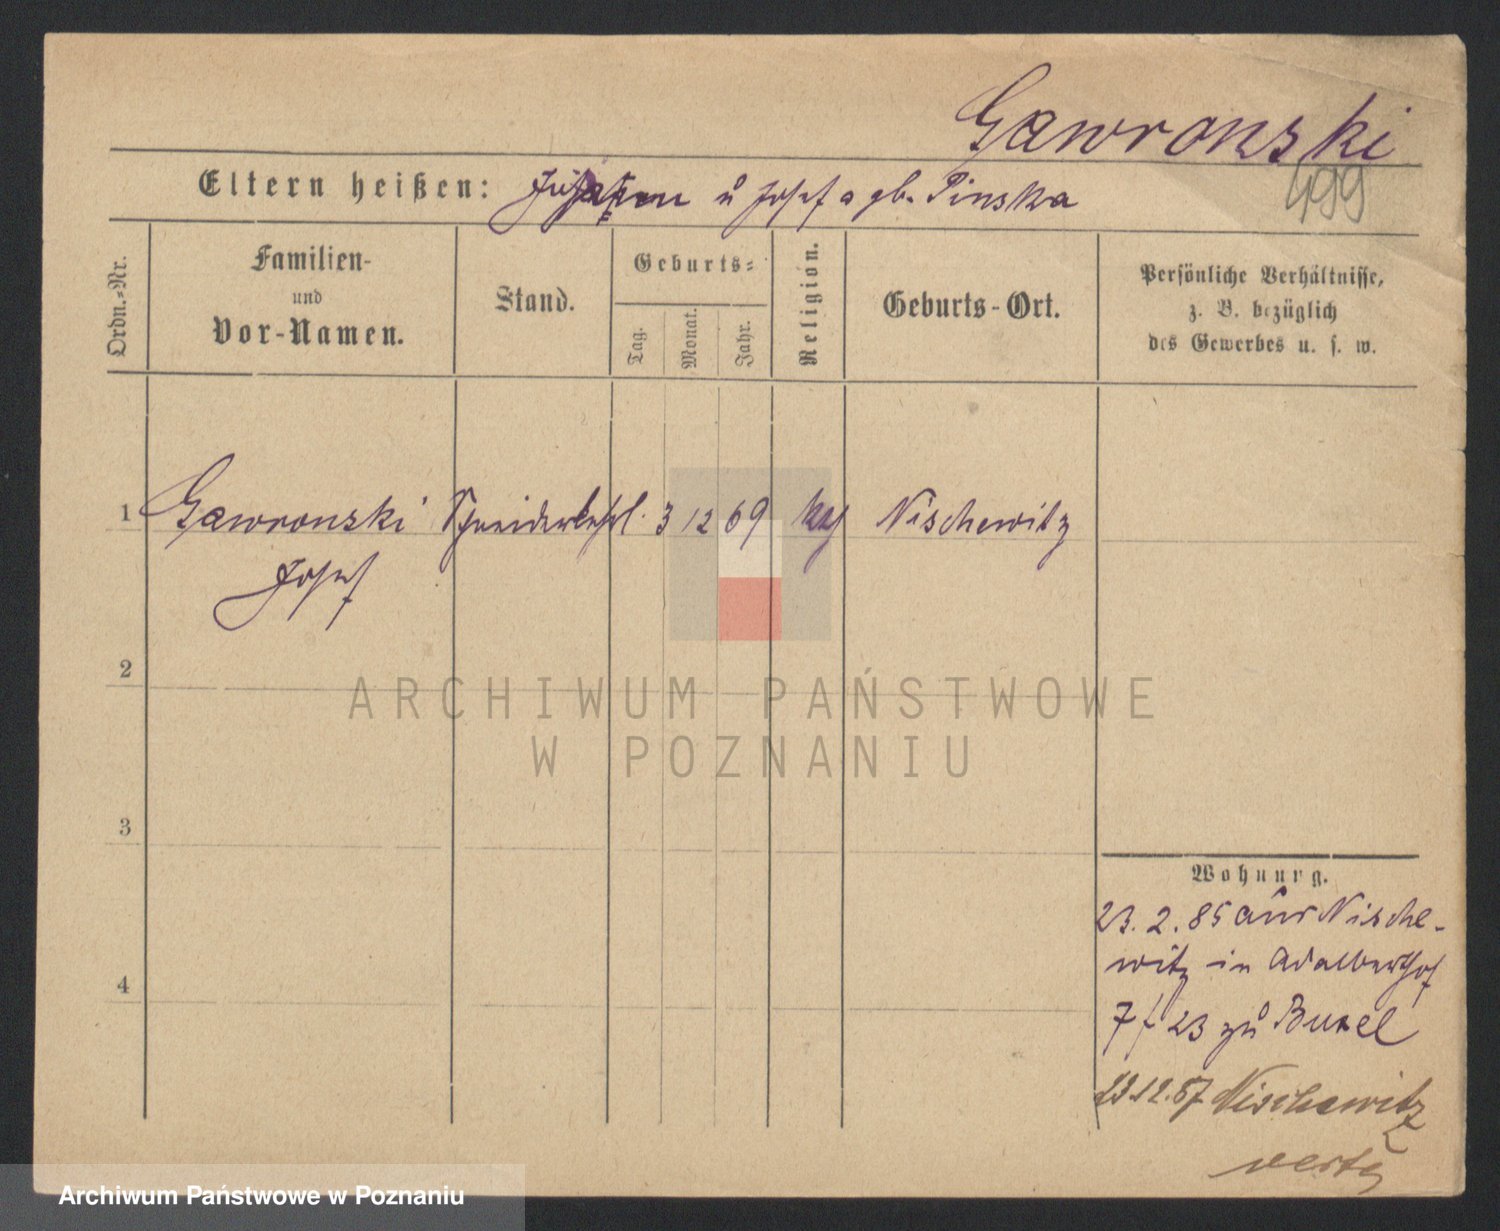 Gawronski
499
Eltern heißen: u Josefa gb. Pinska
Ordn.-Nr.
Familien-
und
Vor-Namen.
Stand.
Geburts-
Tag.
Monat.
Jahr.
Religion.
Geburts-Ort.
Persönliche Verhältnisse,
z. B. bezüglich
des Gewerbes u. s. w.
1 Gawronski Schneiderlehrl. 3 12 69 Nischewitz
Josef
2
ARCHIWUM PAŃSTWOWE
W POZNANIU
3
4
Wohnung.
23. 2. 85 aus Nische-
witz in Adalberthof
7/23 zu Buxel
12.87 Nischewitz
verte
Archiwum Państwowe w Poznaniu